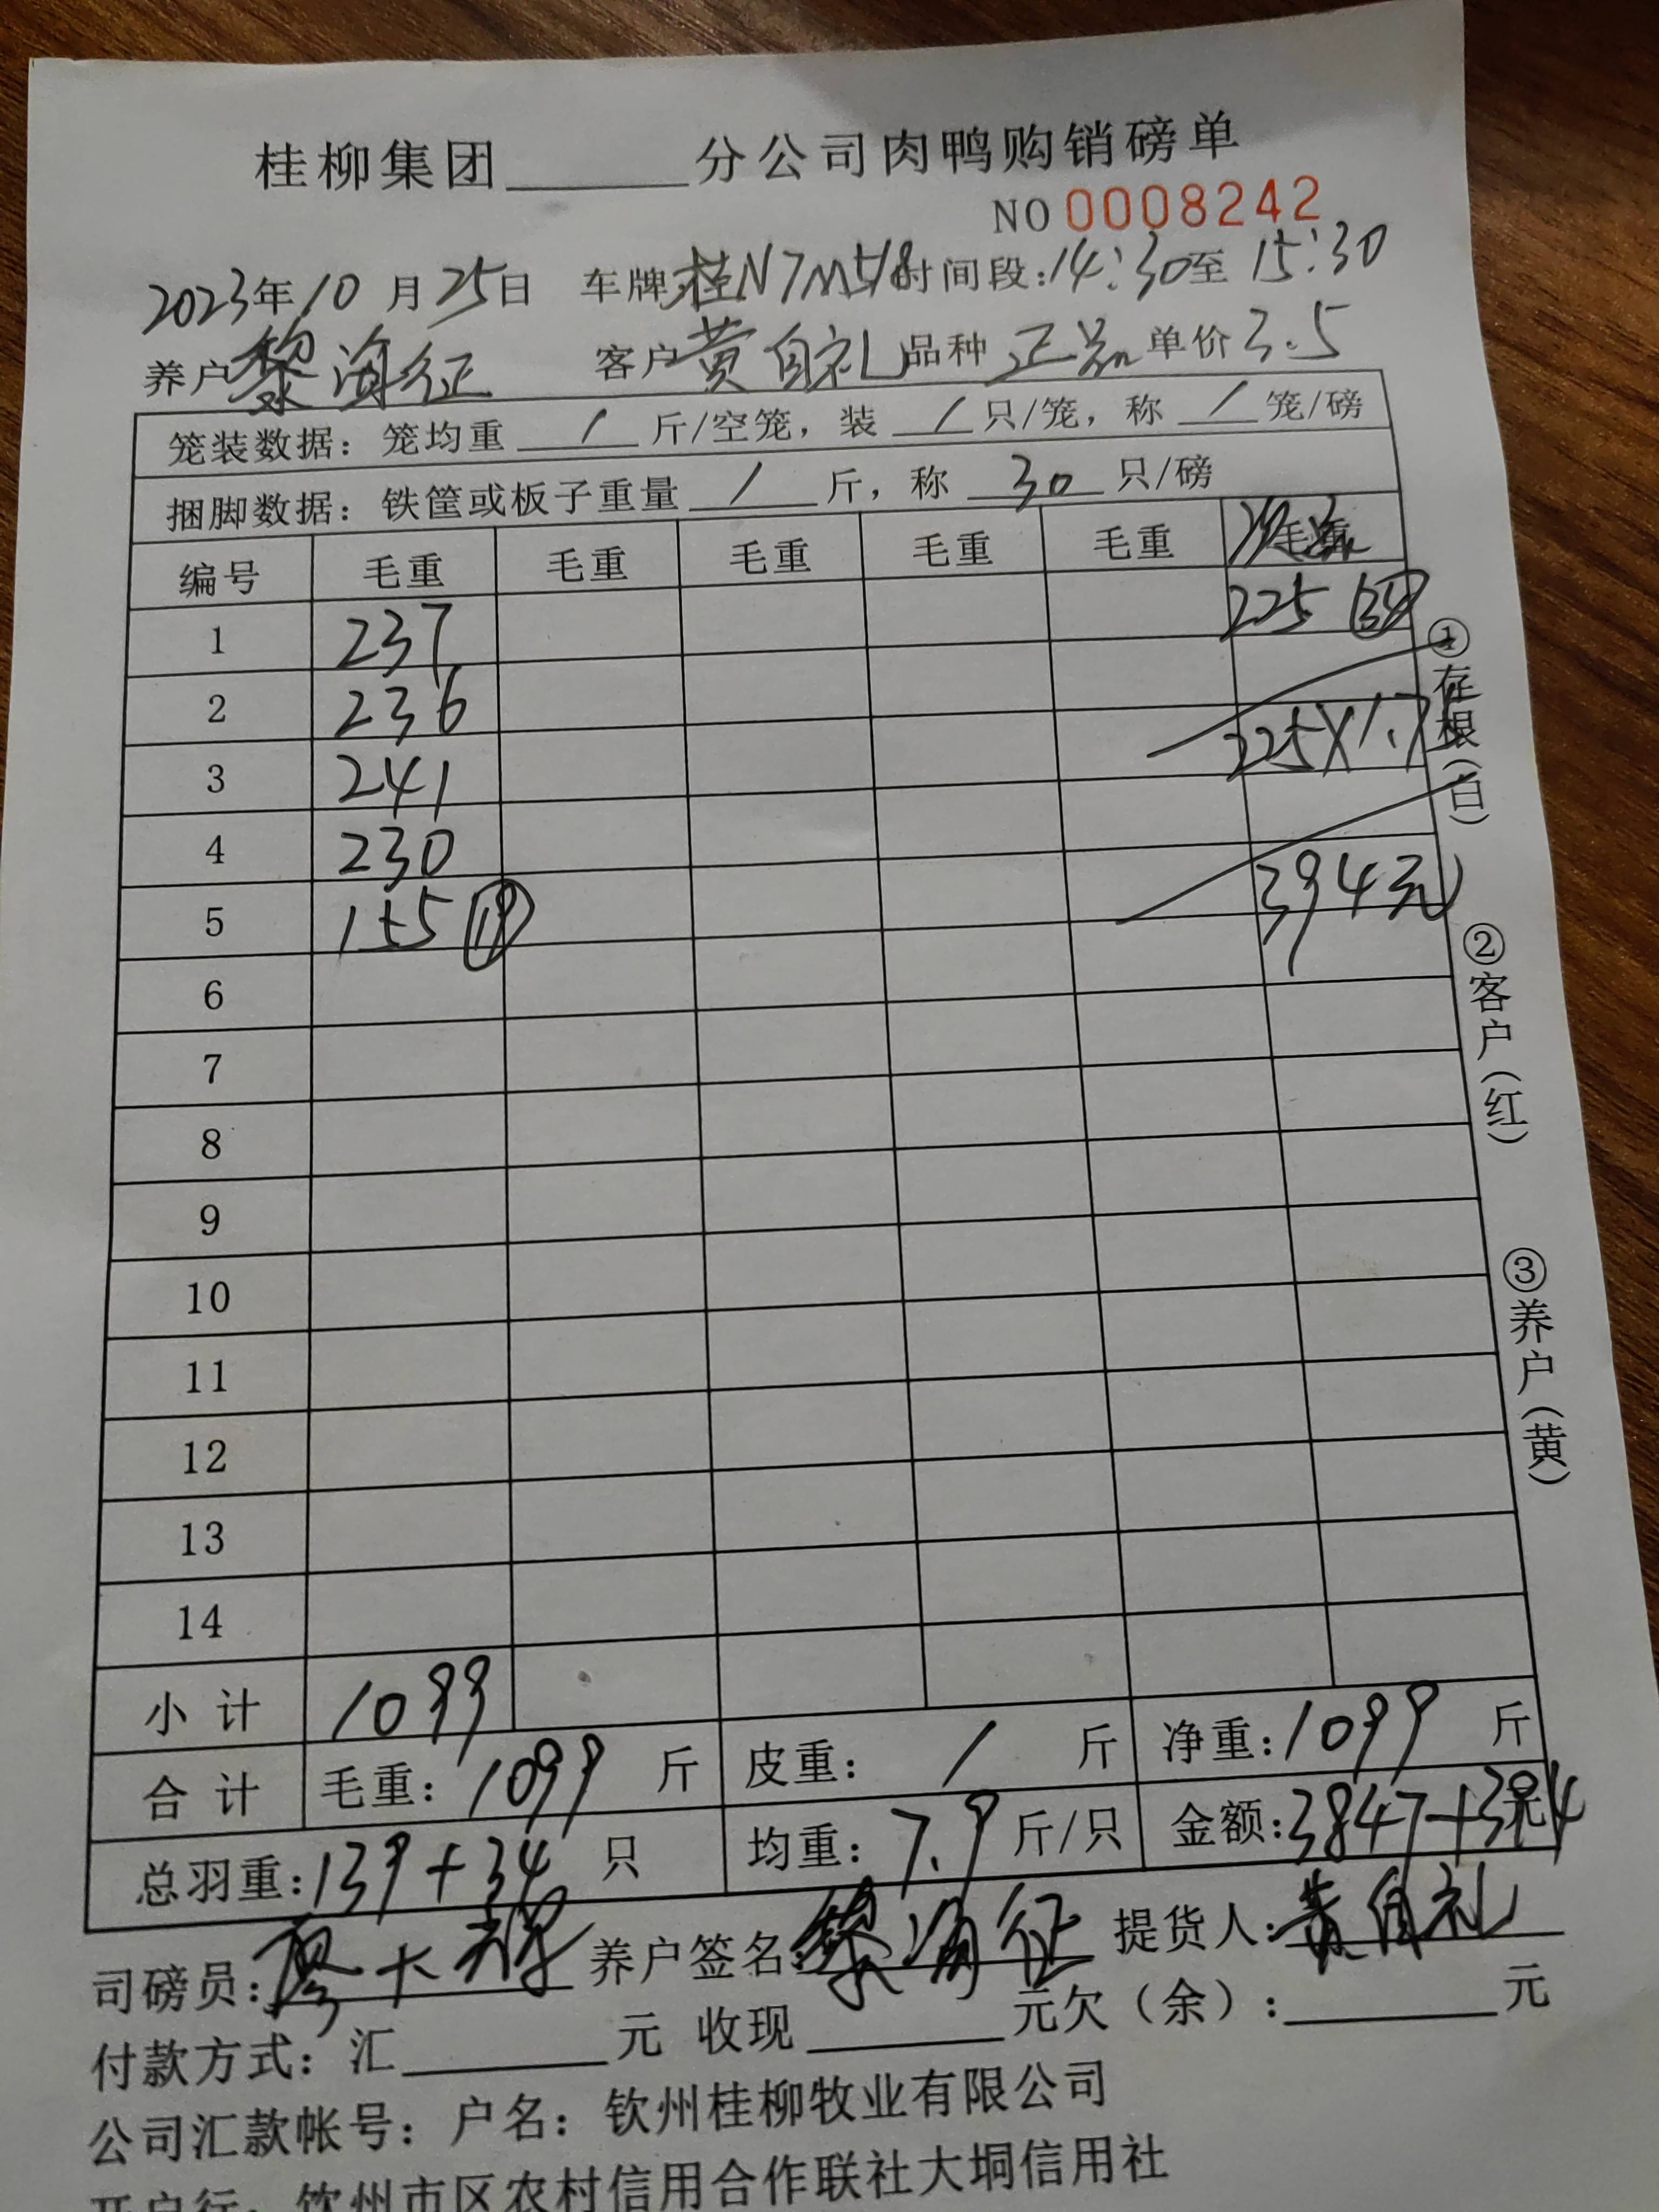 桂柳集团______分公司肉鸭购销磅单
NO 0008242
2023年10月25日 车牌桂N7M518时间段:14:30至15:30
养户黎海征 客户黄自礼品种正品单价3.5
笼装数据：笼均重 / 斤/空笼，装 / 只/笼，称 / 笼/磅
捆脚数据：铁筐或板子重量 / 斤，称 30 只/磅
编号 毛重 毛重 毛重 毛重 毛重 毛重
1 237 225 34
2 236
3 241 225X1.7
4 230
5 155 19 394元
6
7
8
9
10
11
12
13
14
小计 1099
合计 毛重：1099斤 皮重：/ 斤 净重：1099斤
总羽重：139+34只 均重：7.9斤/只 金额：3847+394元
司磅员：廖大 养户签名：黎海征 提货人：黄自礼
付款方式：汇______元 收现______元欠（余）：______元
公司汇款帐号：户名：钦州桂柳牧业有限公司
开户行：钦州市区农村信用合作联社大垌信用社
①存根（白）
②客户（红）
③养户（黄）